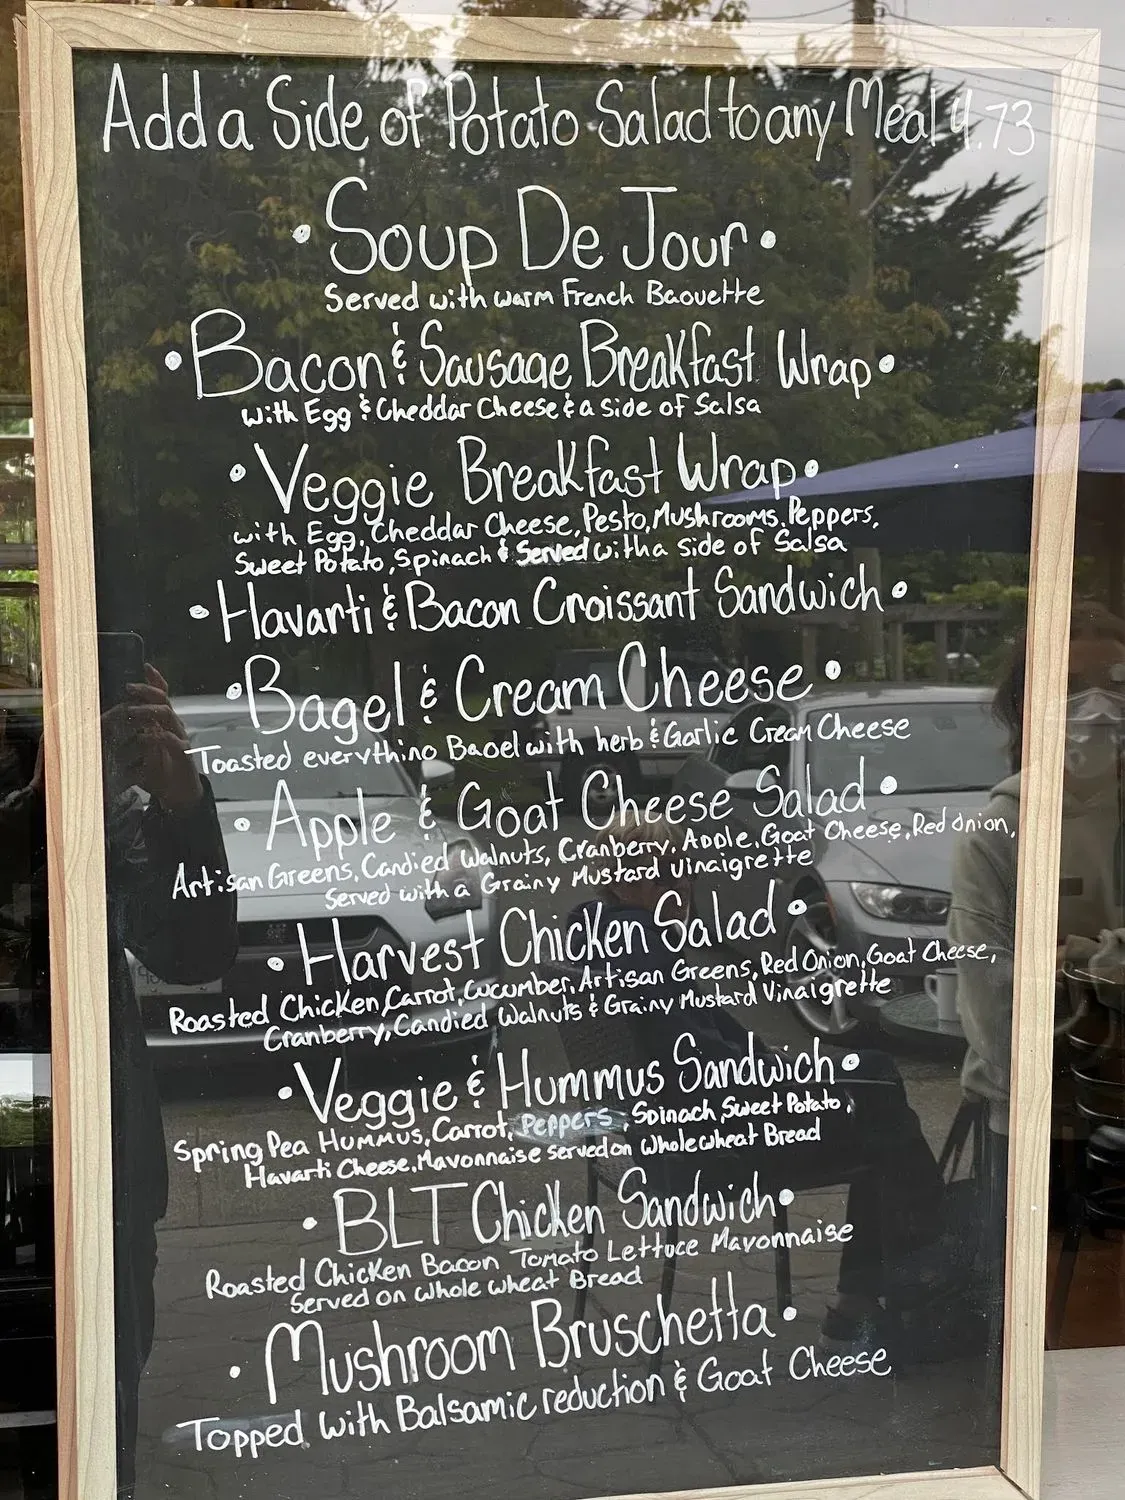 Add a Side of Potato Salad to any Meal 4.73
• Soup De Jour •
Served with warm French Baguette
• Bacon & Sausage Breakfast Wrap •
with Egg & Cheddar Cheese & a side of Salsa
• Veggie Breakfast Wrap •
with Egg, Cheddar Cheese, Pesto, Mushrooms, Peppers,
Sweet Potato, Spinach & Served with a side of Salsa
• Havarti & Bacon Croissant Sandwich •
• Bagel & Cream Cheese •
Toasted everything Bagel with herb & Garlic Cream Cheese
• Apple & Goat Cheese Salad •
Artisan Greens, Candied Walnuts, Cranberry, Apple, Goat Cheese, Red Onion,
Served with a Grainy Mustard Vinaigrette
• Harvest Chicken Salad •
Roasted Chicken, Carrot, Cucumber, Artisan Greens, Red Onion, Goat Cheese,
Cranberry, Candied Walnuts & Grainy Mustard Vinaigrette
• Veggie & Hummus Sandwich •
Spring Pea Hummus, Carrot, Peppers, Spinach, Sweet Potato,
Havarti Cheese, Mayonnaise served on Whole wheat Bread
• BLT Chicken Sandwich •
Roasted Chicken Bacon Tomato Lettuce Mayonnaise
Served on whole wheat Bread
• Mushroom Bruschetta •
Topped with Balsamic reduction & Goat Cheese